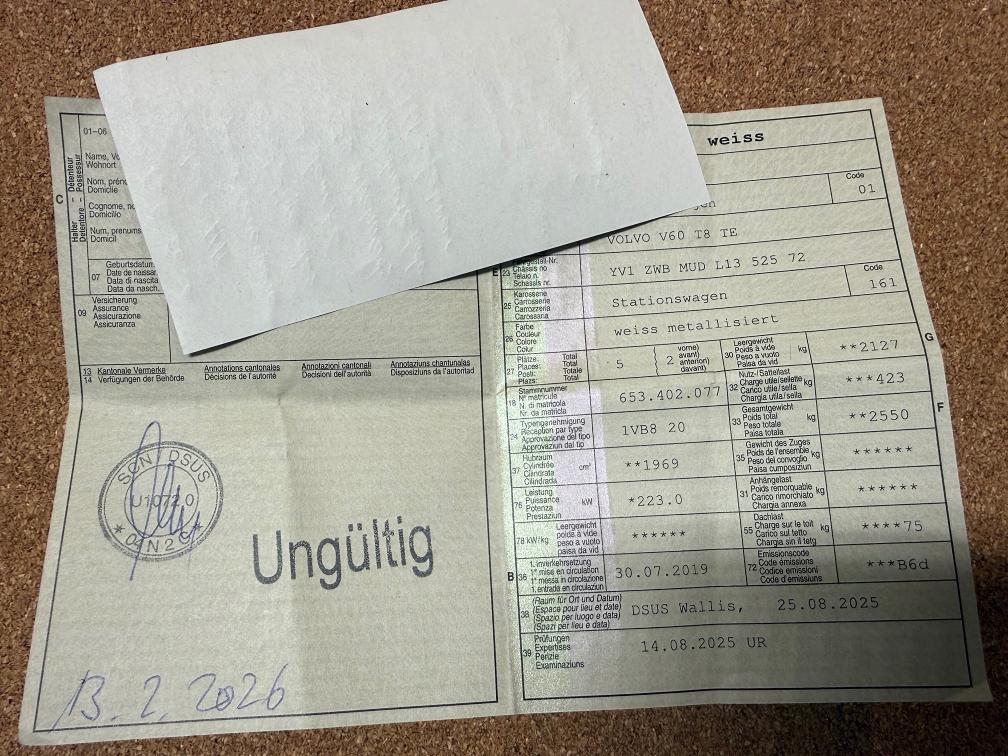 C
Halter – Détenteur
Detentore – Possessur
01–06
Name,
Wohnort
Nom,
Domicile
Cognome,
Domicilio
Num, prenums
Domicil
07
Geburtsdatum
Date de
Data di
Data da nasch.
09
Versicherung
Assurance
Assicurazione
Assicuranza
13 Kantonale Vermerke
14 Verfügungen der Behörde
Annotations cantonales
Décisions de l'autorité
Annotazioni cantonali
Decisioni dell'autorità
Annotaziuns chantunalas
Disposiziuns da l'autoritad
SCN / DSUS
Ungültig
13. 2. 2026
weiss
Code
01
VOLVO V60 T8 TE
E
23
Châssis no
Telaio n.
Schassis nr.
YV1 ZWB MUD L13 525 72
25
Karosserie
Carrosserie
Carrozzeria
Carossaria
Stationswagen
Code
161
26
Farbe
Couleur
Colore
Colur
weiss metallisiert
27
Plätze: Total
Places: Total
Posti: Totale
Plazs: Total
5
( 2
vorne)
avant)
anteriori)
davant)
30
Leergewicht
Poids à vide
Peso a vuoto
Paisa da vid
kg
**2127
G
18
Stammnummer
N° matricule
N. di matricola
Nr. da matricla
653.402.077
32
Nutz-/Sattellast
Charge utile/sellette
Carico utile/sella
Chargia utila/sella
kg
***423
24
Typengenehmigung
Réception par type
Approvazione del tipo
Approvaziun dal tip
1VB8 20
33
Gesamtgewicht
Poids total
Peso totale
Paisa totala
kg
**2550
F
37
Hubraum
Cylindrée
Cilindrata
Cilindrada
cm³
**1969
35
Gewicht des Zuges
Poids de l'ensemble
Peso del convoglio
Paisa cumposiziun
kg
******
76
Leistung
Puissance
Potenza
Prestaziun
kW
*223.0
31
Anhängelast
Poids remorquable
Carico rimorchiato
Chargia annexa
kg
******
78 kW/kg
Leergewicht
poids à vide
peso a vuoto
paisa da vid
******
55
Dachlast
Charge sur le toit
Carico sul tetto
Chargia sin il tetg
kg
****75
B
36
1. Inverkehrsetzung
1re mise en circulation
1a messa in circolazione
1. entrada en circulaziun
30.07.2019
72
Emissionscode
Code émissions
Codice emissioni
Code d'emissiuns
***B6d
38
(Raum für Ort und Datum)
(Espace pour lieu et date)
(Spazio per luogo e data)
(Spazi per lieu e data)
DSUS Wallis, 25.08.2025
39
Prüfungen
Expertises
Perizie
Examinaziuns
14.08.2025 UR